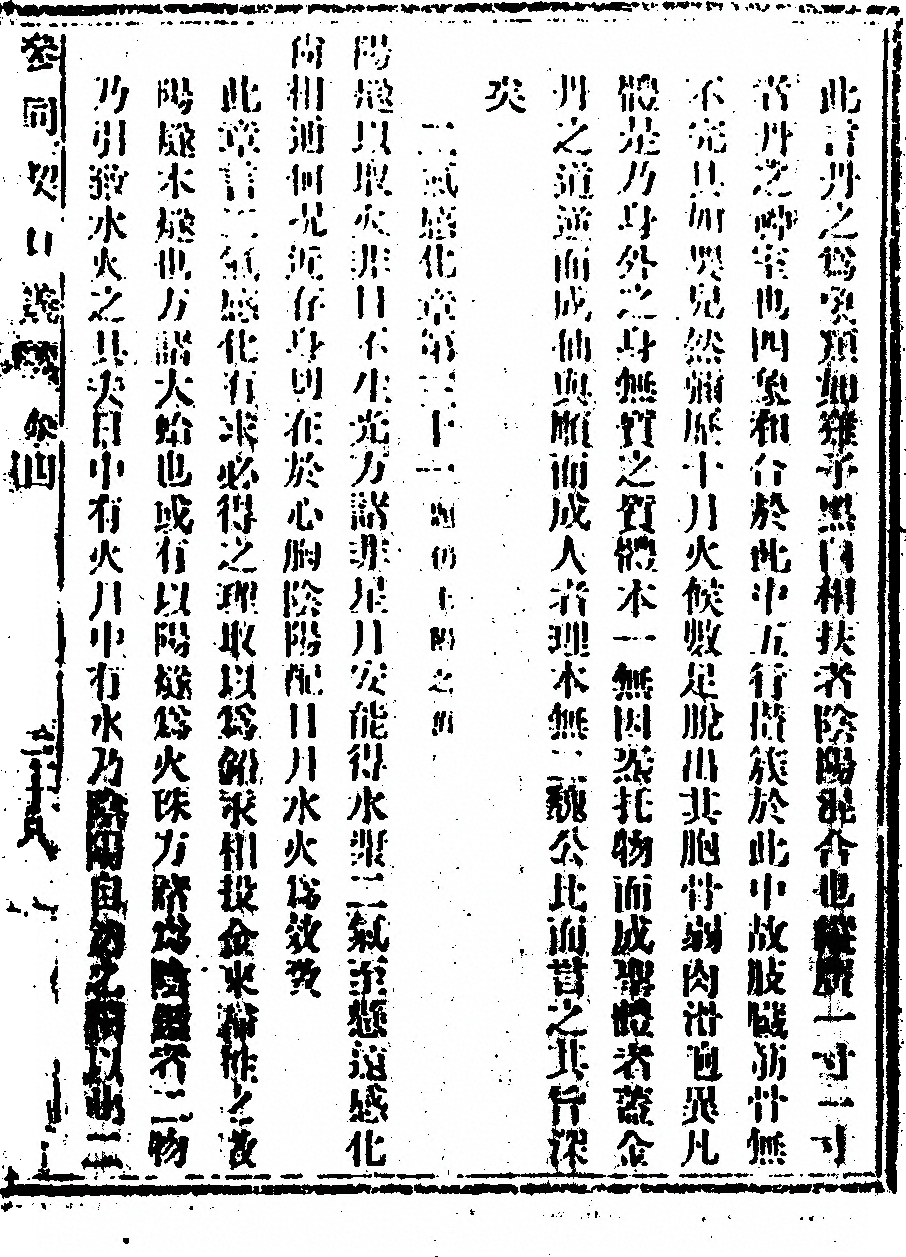 此言丹之爲象類如雞子黑白相扶者陰陽混合也縱廣一寸一寸
者丹之神室也四象和合於此中五行攢簇於此中故肢臟筋骨無
不完具如嬰兒然彌歷十月火候數足脫出其胞骨弱肉滑迥異凡
體是乃身外之身無質之質體本一無因炁托物而成聖體者蓋金
丹之道逆而成仙與順而成人者理本無二魏公比而喻之其旨深
矣
二氣感化章第三十一
陽燧以取火非日不生光方諸非星月安能得水漿二氣至懸遠感化
尚相通何況近存身切在於心胸陰陽配日月水火爲效徵
此章言二氣感化有求必得之理取以爲鉛汞相投金木歸性之徵
陽燧木燧也方諸大蛤也或有以陽燧爲火珠方諸爲陰鑑者二物
乃引致水火之具夫日中有火月中有水乃陰陽自 之 以此二
參同契口義 卷四